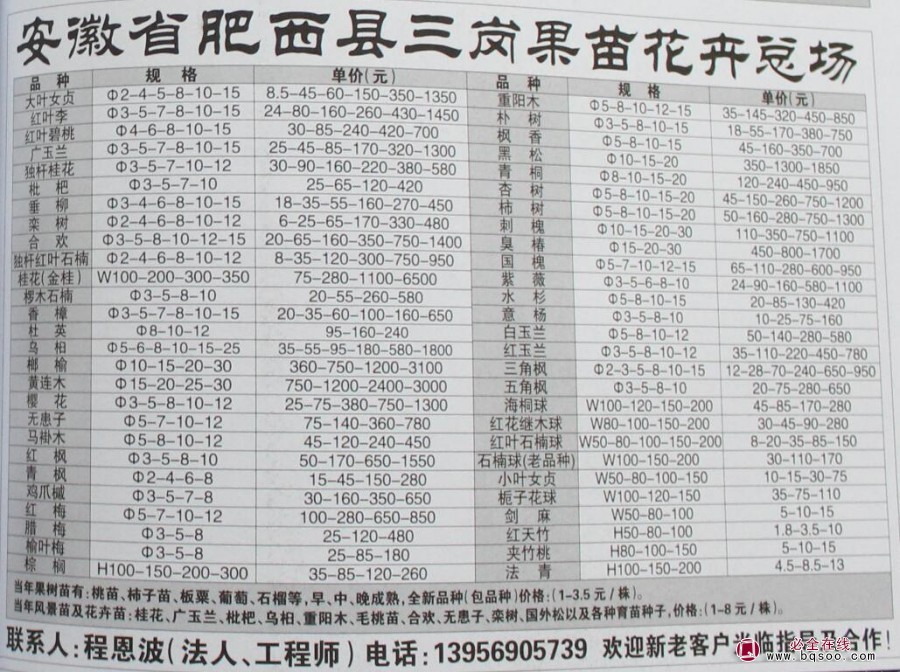 安徽省肥西县三岗果苗花卉总场
品 种 规 格 单价(元) 品 种 规 格 单价(元)
大叶女贞 Φ2-4-5-8-10-15 8.5-45-60-150-350-1350 重阳木 Φ5-8-10-12-15 35-145-320-450-850
红叶李 Φ3-5-7-8-10-15 24-80-160-260-430-1450 朴 树 Φ3-5-8-10-15 18-55-170-380-750
红叶碧桃 Φ4-6-8-10-15 30-85-240-420-700 枫 香 Φ5-8-10-15 45-160-350-700
广玉兰 Φ3-5-7-8-10-15 25-45-85-170-320-1300 黑 松 Φ10-15-20 350-1300-1850
独杆桂花 Φ3-5-7-10-12 30-90-160-220-380-580 青 桐 Φ8-10-15-20 120-240-450-950
枇 杷 Φ3-5-7-10 25-65-120-420 杏 树 Φ5-8-10-15-20 45-150-260-750-1200
垂 柳 Φ3-4-6-8-10-15 18-35-55-160-270-450 柿 树 Φ5-8-10-15-20 50-160-280-750-1300
栾 树 Φ2-4-6-8-10-12 6-25-65-170-330-480 刺 槐 Φ10-15-20-30 110-350-750-1100
合 欢 Φ3-5-8-10-12-15 20-65-160-350-750-1400 臭 椿 Φ15-20-30 450-800-1700
独杆红叶石楠 Φ2-4-6-8-10-12 8-35-120-300-750-950 国 槐 Φ5-7-10-12-15 65-110-280-600-950
桂花(金桂) W100-200-300-350 75-280-1100-6500 紫 薇 Φ3-5-6-8-10 24-90-160-580-1100
椤木石楠 Φ3-5-8-10 20-55-260-580 水 杉 Φ5-8-10-15 20-85-130-420
香 樟 Φ3-5-7-8-10-15 20-35-60-100-160-650 意 杨 Φ3-5-8-10 10-25-75-160
杜 英 Φ8-10-12 95-160-240 白玉兰 Φ5-8-10-12 50-140-280-580
乌 桕 Φ5-6-8-10-15-25 35-55-95-180-580-1800 红玉兰 Φ3-5-8-10-12 35-110-220-450-780
榔 榆 Φ10-15-20-30 360-750-1200-3100 三角枫 Φ2-3-5-8-10-15 12-28-70-240-650-950
黄连木 Φ15-20-25-30 750-1200-2400-3000 五角枫 Φ3-5-8-10 20-75-280-650
樱 花 Φ3-5-8-10-12 25-75-380-750-1300 海桐球 W100-120-150-200 45-85-170-280
无患子 Φ5-7-10-12 75-140-360-780 红花继木球 W80-100-150-200 30-45-90-280
马褂木 Φ5-8-10-12 45-120-240-450 红叶石楠球 W50-80-100-150-200 8-20-35-85-150
红 枫 Φ3-5-8-10 50-170-650-1550 石楠球(老品种) W100-150-200 30-110-170
青 枫 Φ2-4-6-8 15-45-150-280 小叶女贞 W50-80-100-150 10-15-30-75
鸡爪槭 Φ3-5-7-8 30-160-350-650 栀子花球 W100-120-150 35-75-110
红 梅 Φ5-7-10-12 100-280-650-850 剑 麻 W50-80-100 5-10-15
腊 梅 Φ3-5-8 25-120-480 红天竹 H50-80-100 1.8-3.5-10
榆叶梅 Φ3-5-8 25-85-180 夹竹桃 H80-100-150 5-10-15
棕 榈 H100-150-200-300 35-85-120-260 法 青 H100-150-200 4.5-8.5-13
当年果树苗有:桃苗、柿子苗、板粟、葡萄、石榴等,早、中、晚成熟,全新品种(包品种)价格:(1-3.5元/株)。
当年风景苗及花卉苗:桂花、广玉兰、枇杷、乌桕、重阳木、毛桃苗、合欢、无患子、栾树、国外松以及各种育苗种子,价格:(1-8元/株)。
联系人:程恩波(法人、工程师) 电话:13956905739 欢迎新老客户光临指导及合作!
必全网
www.bqsoo.com